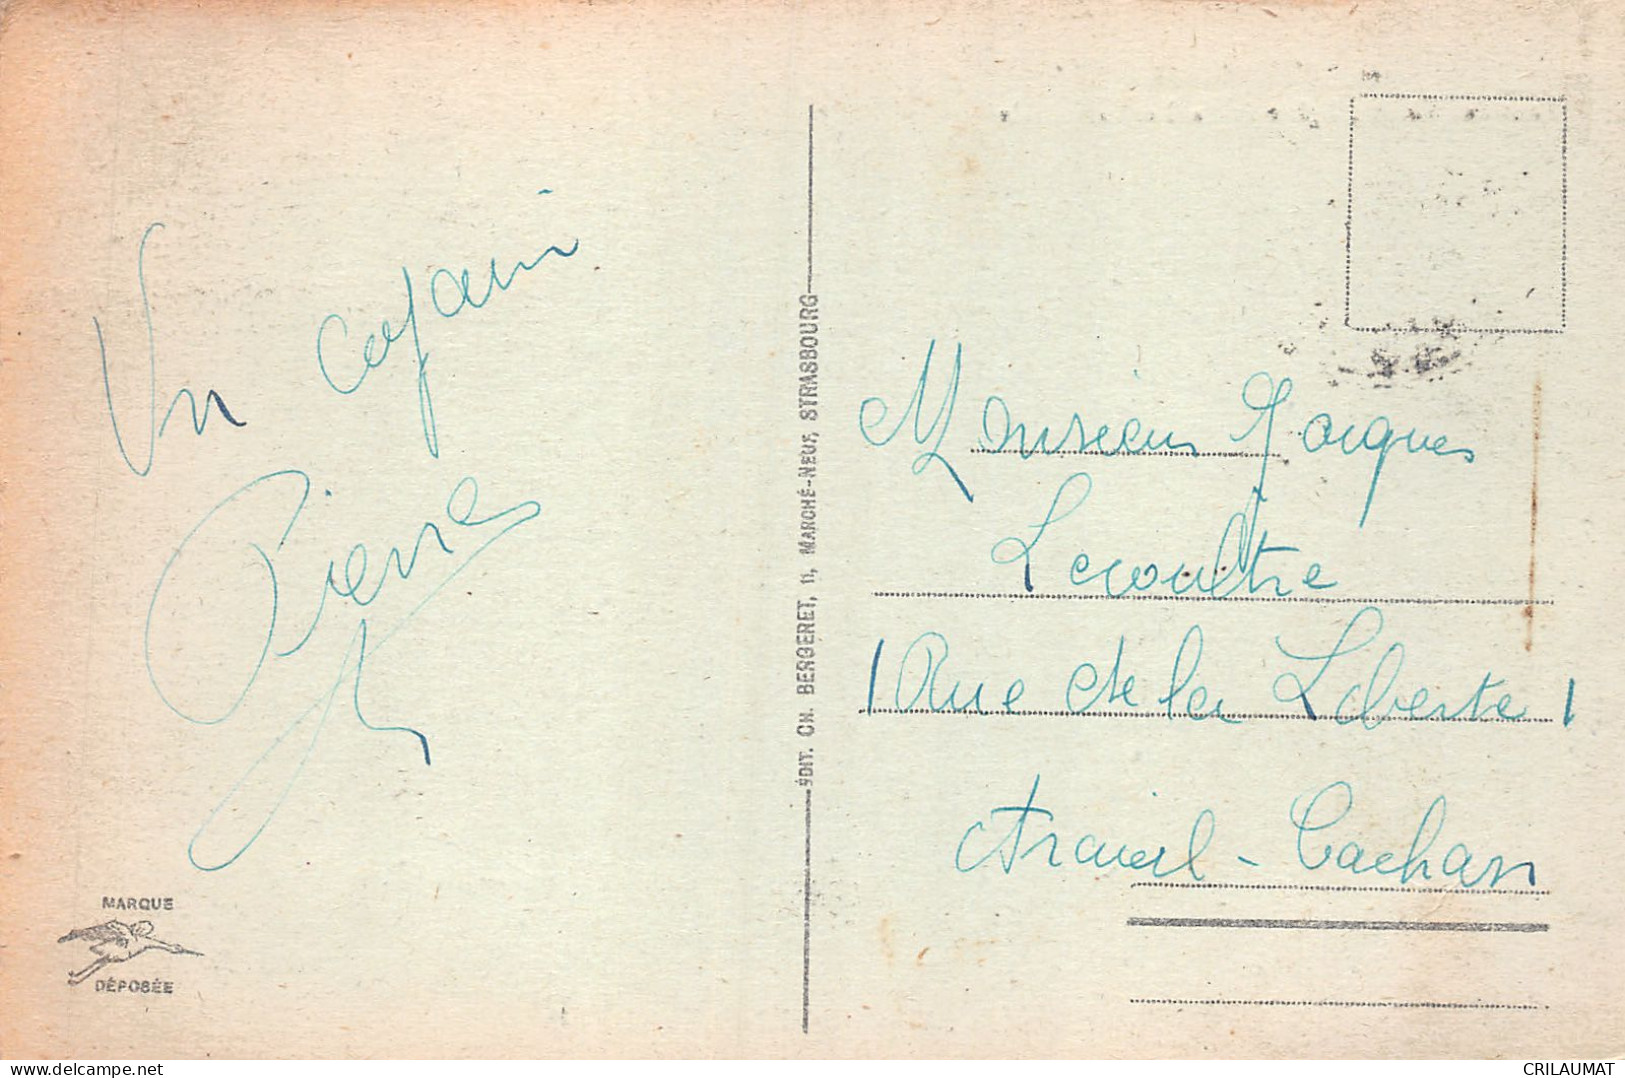 Un copain
Pierre
MARQUE
DÉPOSÉE
ÉDIT. CH. BERGERET, 11, MARCHÉ-NEUF, STRASBOURG
Monsieur Jacques
Lecoultre
1 Rue de la Liberte 1
Arcueil - Cachan
delcampe.net
CRILAUMAT